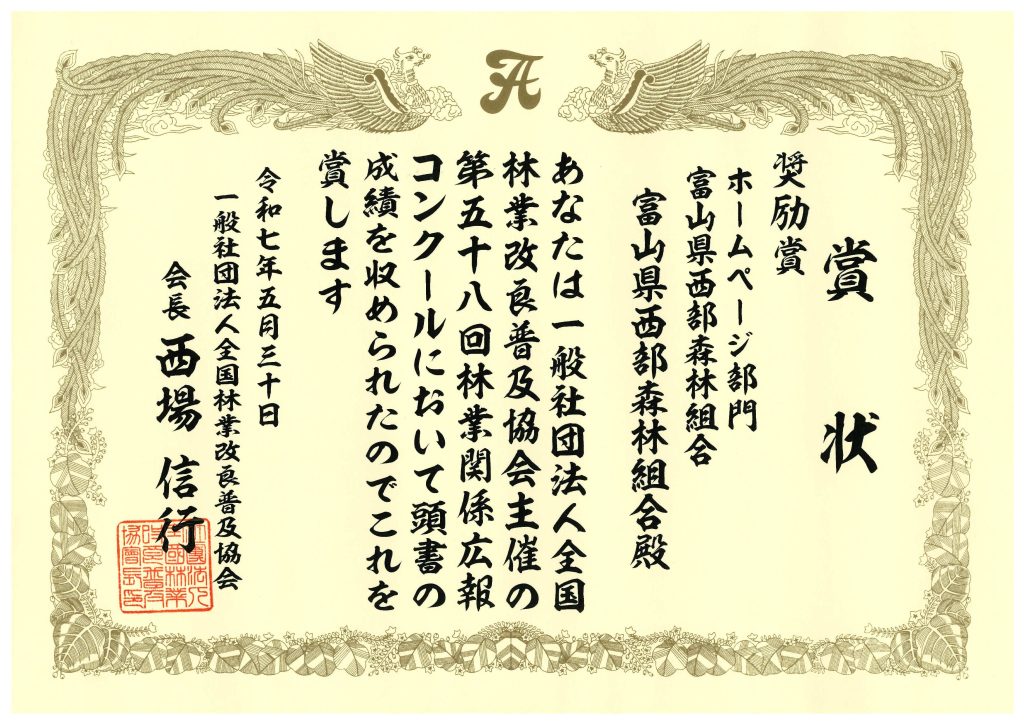 賞状
奨励賞
ホームページ部門
富山県西部森林組合
富山県西部森林組合殿
あなたは一般社団法人全国
林業改良普及協会主催の
第五十八回林業関係広報
コンクールにおいて頭書の
成績を収められたのでこれを
賞します
令和七年五月三十日
一般社団法人全国林業改良普及協会
会長 西場 信行